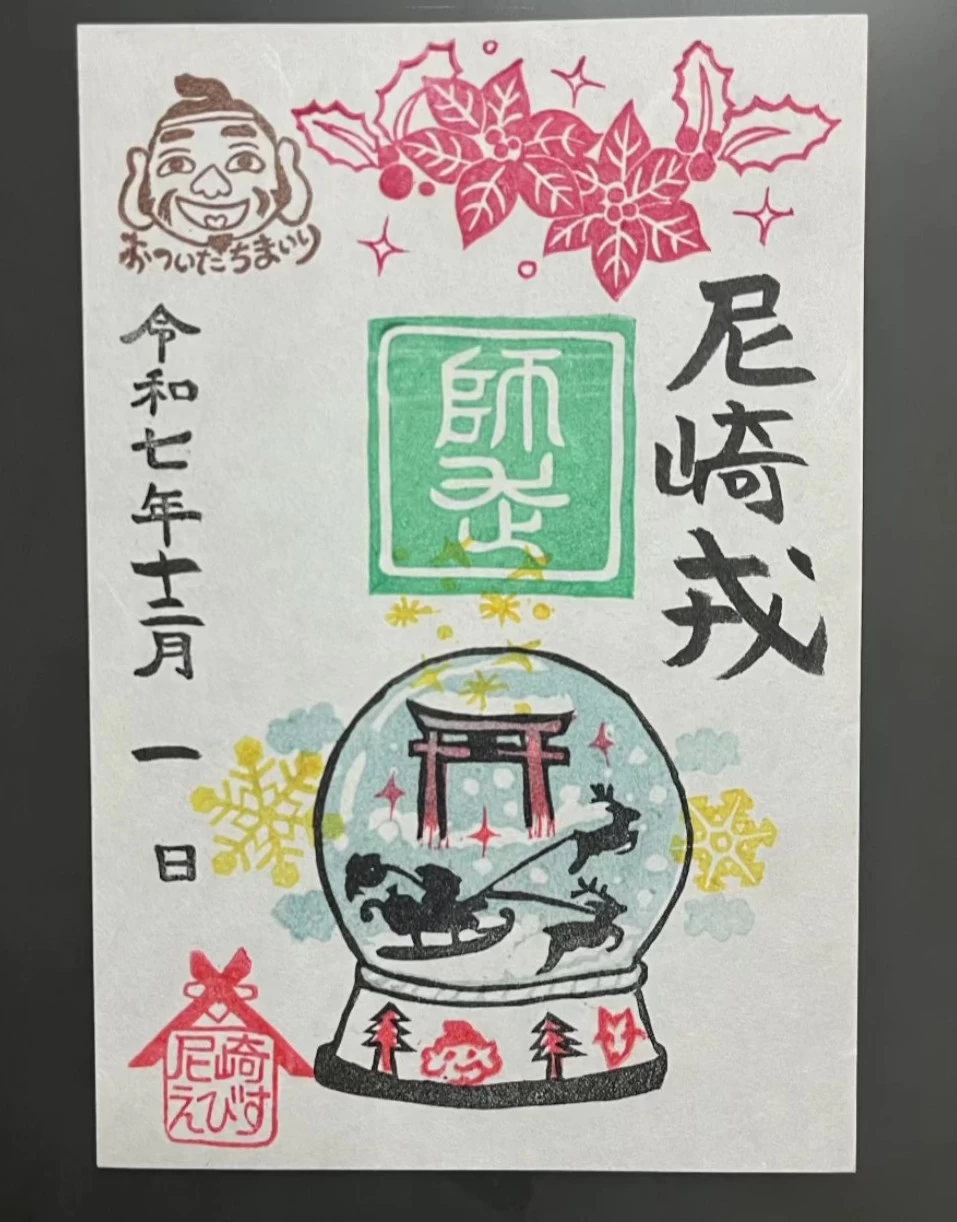 尼崎戎
師走
おついたちまいり
令和七年十二月一日
尼崎
えびす